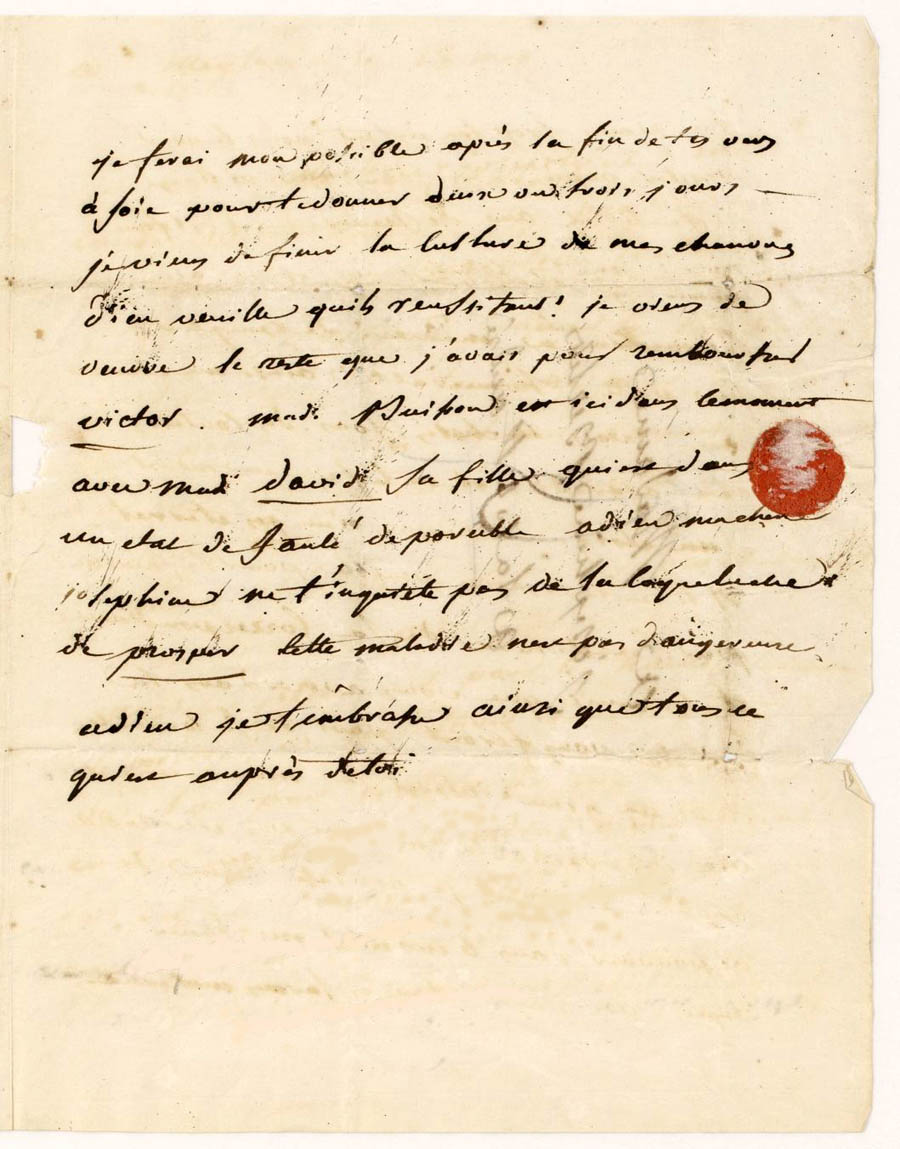 je ferai mon possible après la fin de tes vers
à soie pour te donner deux ou trois jours
je viens de finir la culture de mes chanvres
dieu veuille quils reussissent! je viens de
vendre le reste que j'avais pour rembourser
victor. mad. Buisson est ici dans le moment
avec mad david sa fille qui est dans
un etat de santé deplorable adieu ma chere
josephine ne t'inquiete pas de la coqueluche
de prosper cette maladie nest pas dangereuse
adieu je t'embrasse ainsi que tous ce
qui est auprès de toi